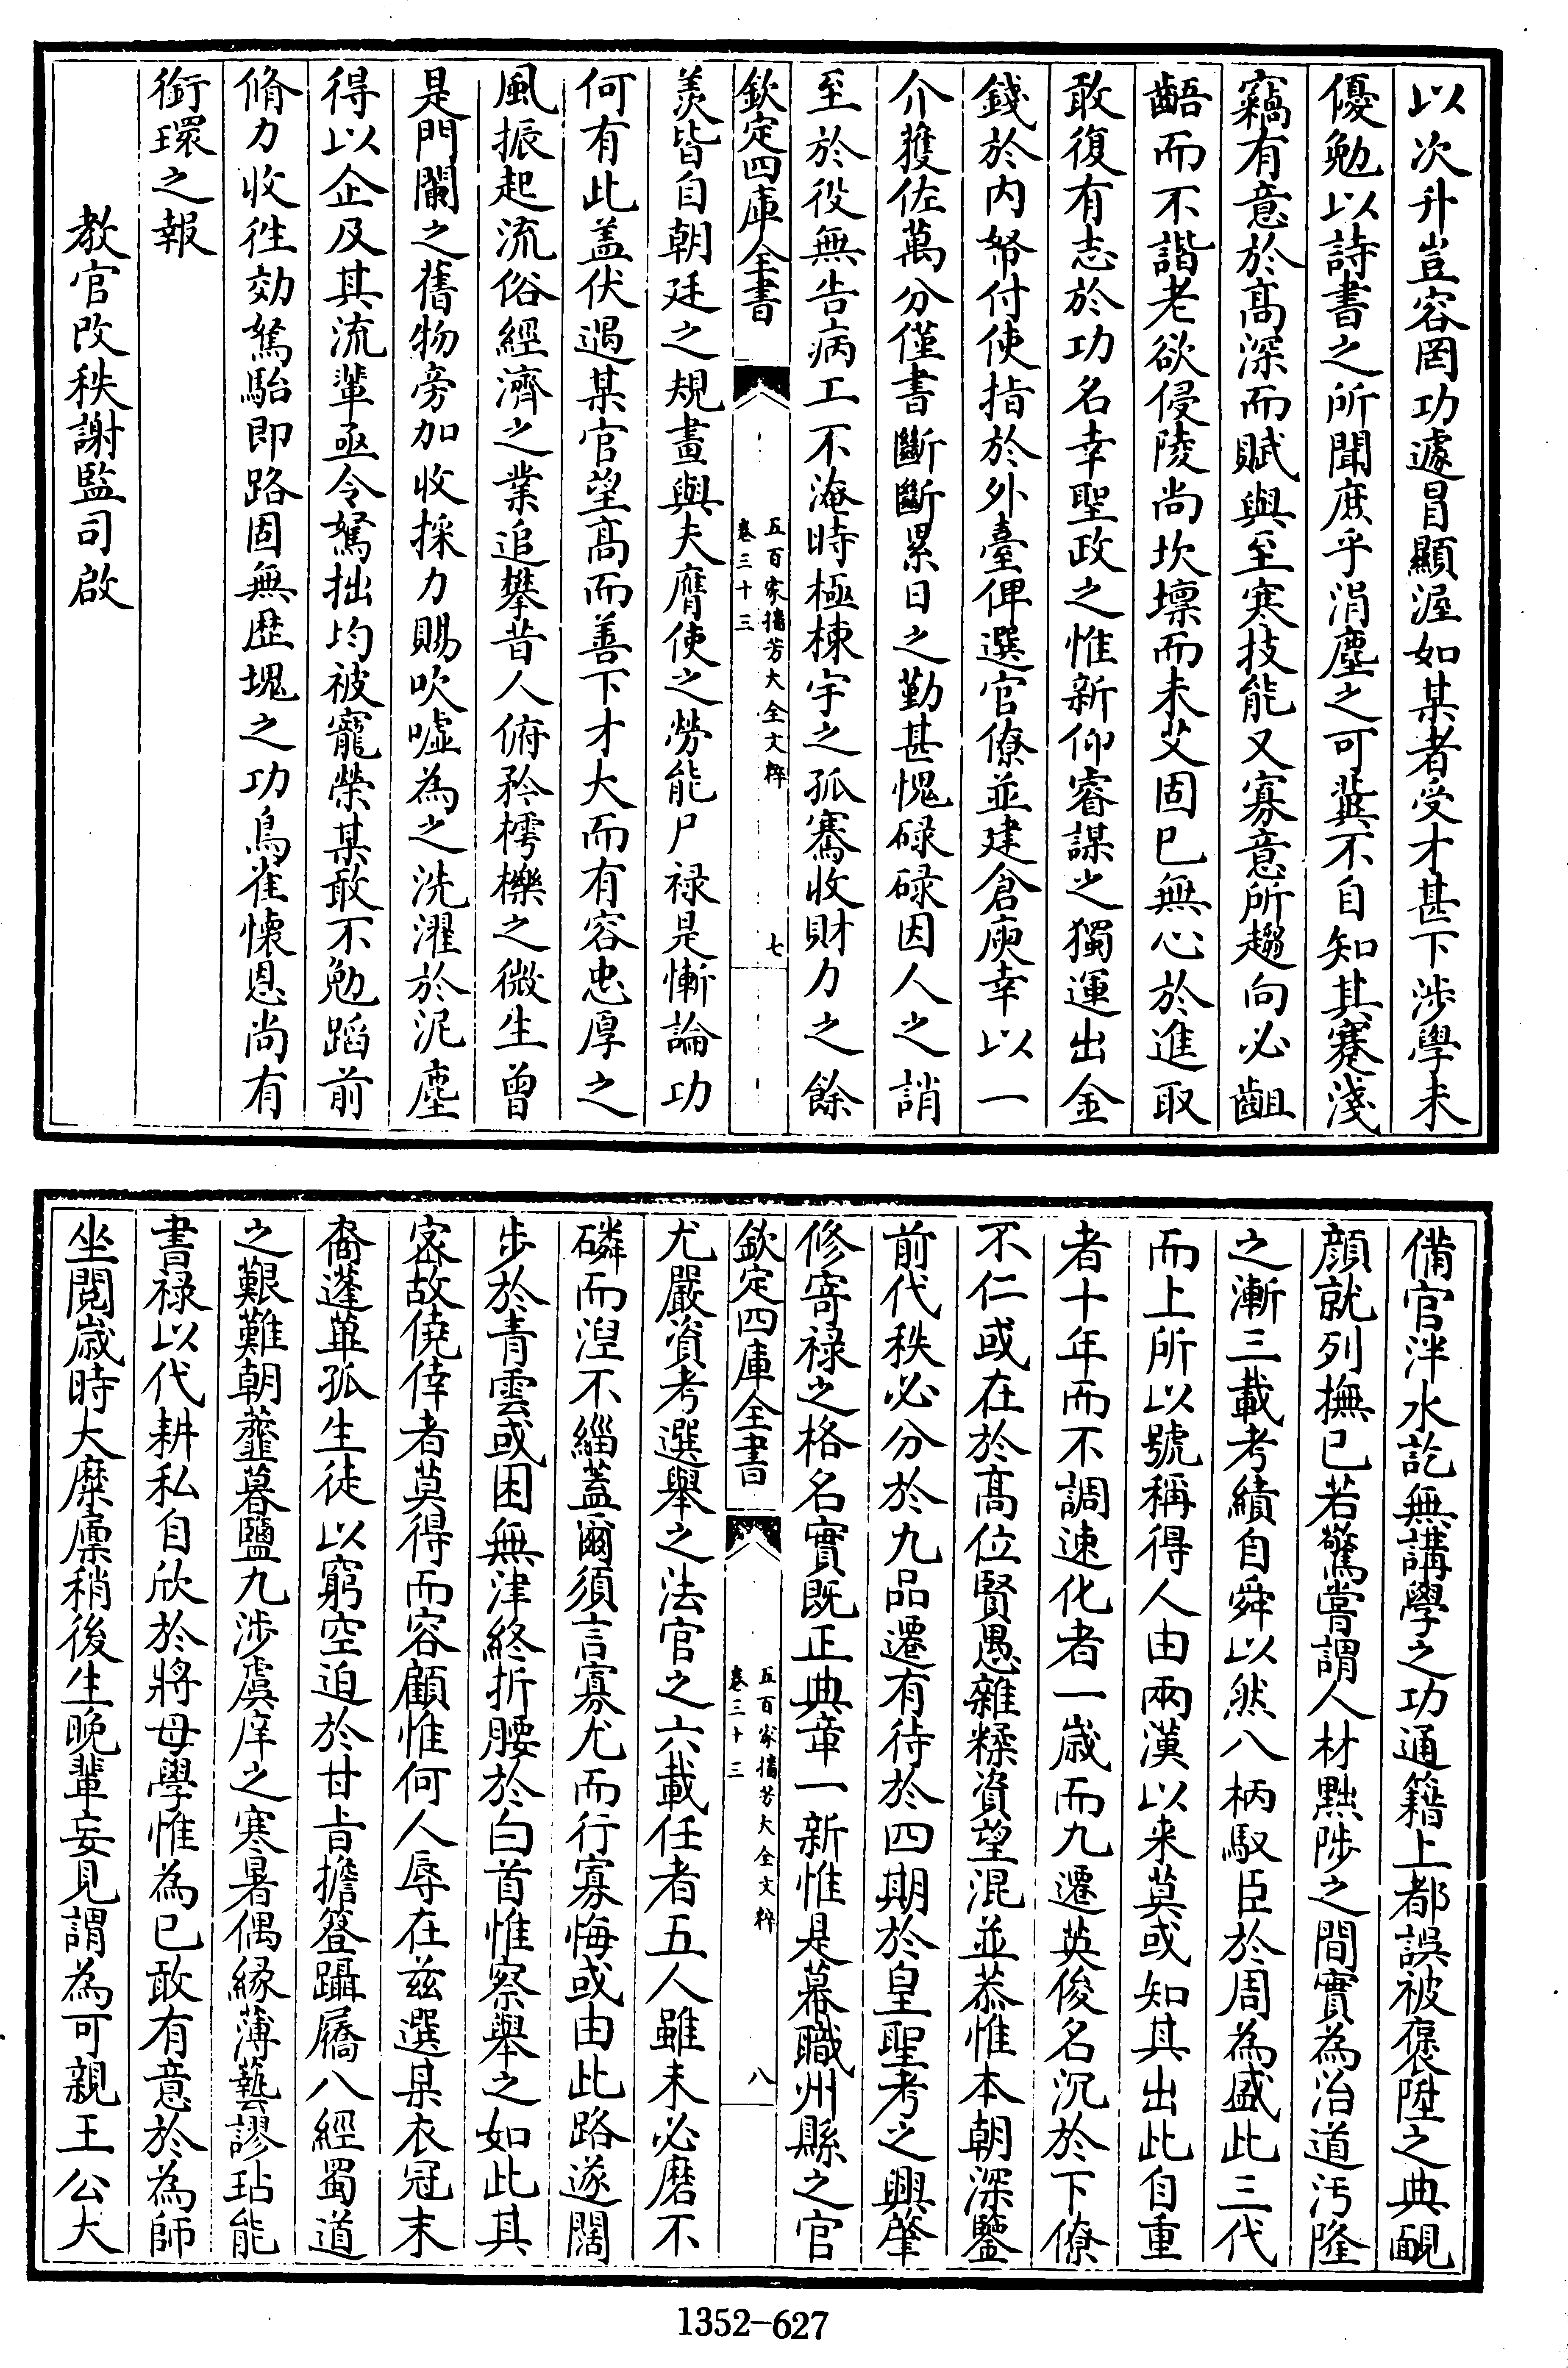 以次升豈容罔功遽冒顯渥如某者受才甚下涉學未
優勉以詩書之所聞庶乎涓塵之可冀不自知其蹇淺
竊有意於髙深而賦與至寒技能又寡意所趨向必齟
齬而不諧老欲侵陵尚坎壈而未艾固已無心於進取
敢復有志於功名幸聖政之惟新仰睿謀之獨運出金
錢於内帑付使指於外臺俾選官僚並建倉庾幸以一
介獲佐萬分僅書斷斷累日之勤甚愧碌碌因人之誚
至於役無告病工不淹時極棟宇之孤騫收財力之餘
欽定四庫全書
五百家播芳大全文粹
卷三十三
七
羨皆自朝廷之規畫與夫膺使之勞能尸禄是慚論功
何有此盖伏遇某官望髙而善下才大而有容忠厚之
風振起流俗經濟之業追攀昔人俯矜樗櫟之微生曾
是門闌之舊物旁加收採力賜吹噓為之洗濯於泥塵
得以企及其流輩亟令駑拙均被寵榮某敢不勉蹈前
脩力收徃効駑駘即路固無歴塊之功鳥雀懐恩尚有
銜環之報
教官改秩謝監司啟
備官泮水訖無講學之功通籍上都誤被褒陞之典靦
顔就列撫已若驚嘗謂人材黜陟之間實為治道汚隆
之漸三載考績自舜以然八柄馭臣於周為盛此三代
而上所以號稱得人由兩漢以来莫或知其出此自重
者十年而不調速化者一歳而九遷英俊名沉於下僚
不仁或在於髙位賢愚雜糅資望混並恭惟本朝深鑒
前代秩必分於九品遷有待於四期於皇聖考之興肇
修寄禄之格名實既正典章一新惟是幕職州縣之官
欽定四庫全書
五百家播芳大全文粹
卷三十三
八
尤嚴資考選舉之法官之六載任者五人雖未必磨不
磷而湼不緇蓋爾須言寡尤而行寡悔或由此路遂闊
步於青雲或困無津終折腰於白首惟察舉之如此其
宻故僥倖者莫得而容顧惟何人辱在兹選某衣冠末
裔蓬蓽孤生徒以窮空迫於甘旨擔簦躡屩八經蜀道
之艱難朝虀暮鹽九涉虞庠之寒暑偶縁薄藝謬玷能
書禄以代耕私自欣於將母學惟為已敢有意於為師
坐閲歳時大糜廩稍後生晩輩妄見謂為可親王公大
1352-627